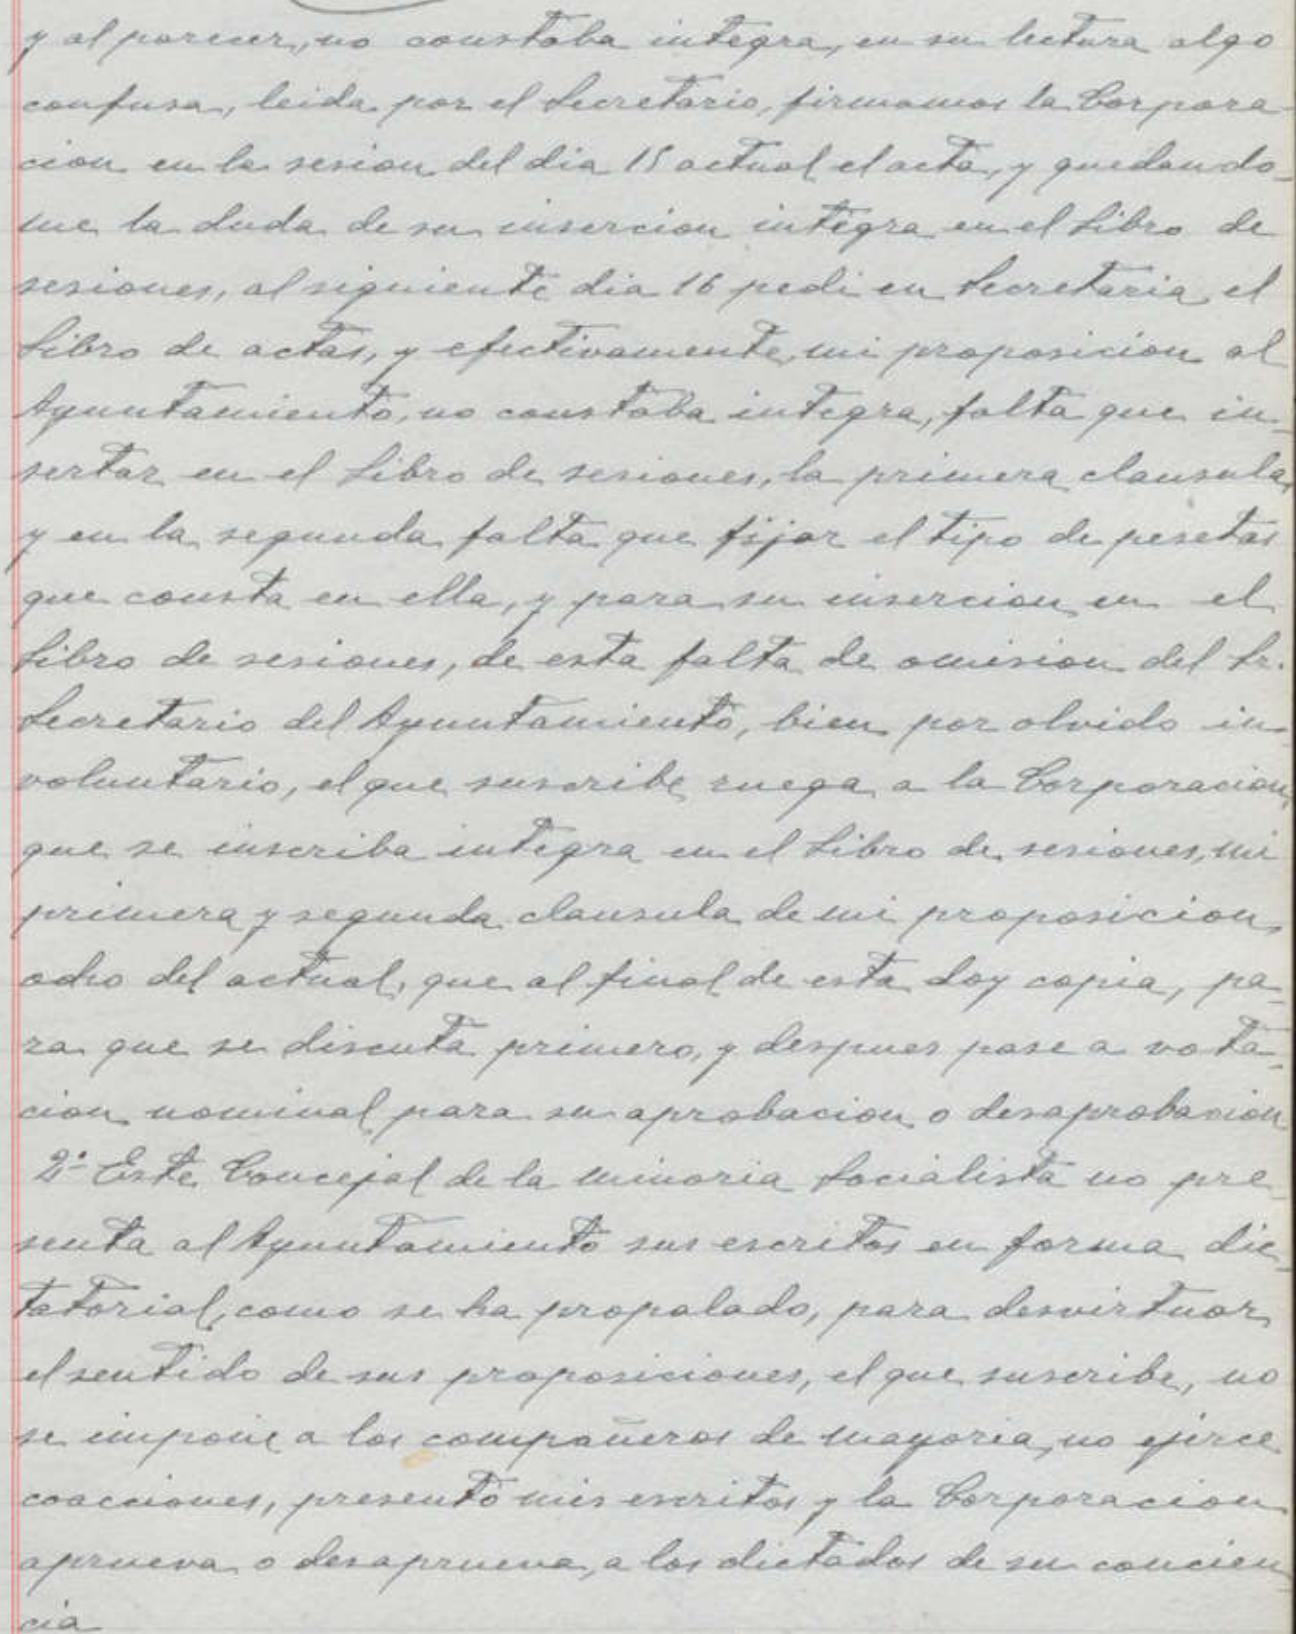 y al parecer, no constaba integra, en su lectura algo
confusa, leida por el Secretario, firmamos la Corpora-
cion en la sesion del dia 15 actual el acta, y quedando-
me la duda de su insercion integra en el Libro de
sesiones, al siguiente dia 16 pedi en Secretaria el
Libro de actas, y efectivamente mi proposicion al
Ayuntamiento, no constaba integra, falta que in-
sertar en el Libro de sesiones, la primera clausula,
y en la segunda falta que fijar el tipo de pesetas
que consta en ella, y para su insercion en el
Libro de sesiones, de esta falta de omision del Sr.
Secretario del Ayuntamiento, bien por olvido in-
voluntario, el que suscribe ruega a la Corporacion,
que se inscriba integra en el Libro de sesiones, mi
primera y segunda clausula de mi proposicion
ocho del actual, que al final de esta doy copia, pa-
ra que se discuta primero, y despues pase a vota-
cion nominal para su aprobacion o desaprobacion
2º- Este Concejal de la minoria Socialista no pre-
senta al Ayuntamiento sus escritos en forma dic-
tatorial, como se ha propalado, para desvirtuar
el sentido de sus proposiciones, el que suscribe, no
se impone a los compañeros de mayoria, no ejerce
coacciones, presento mis escritos y la Corporacion
aprueva o desaprueva, a los dictados de su concien-
cia